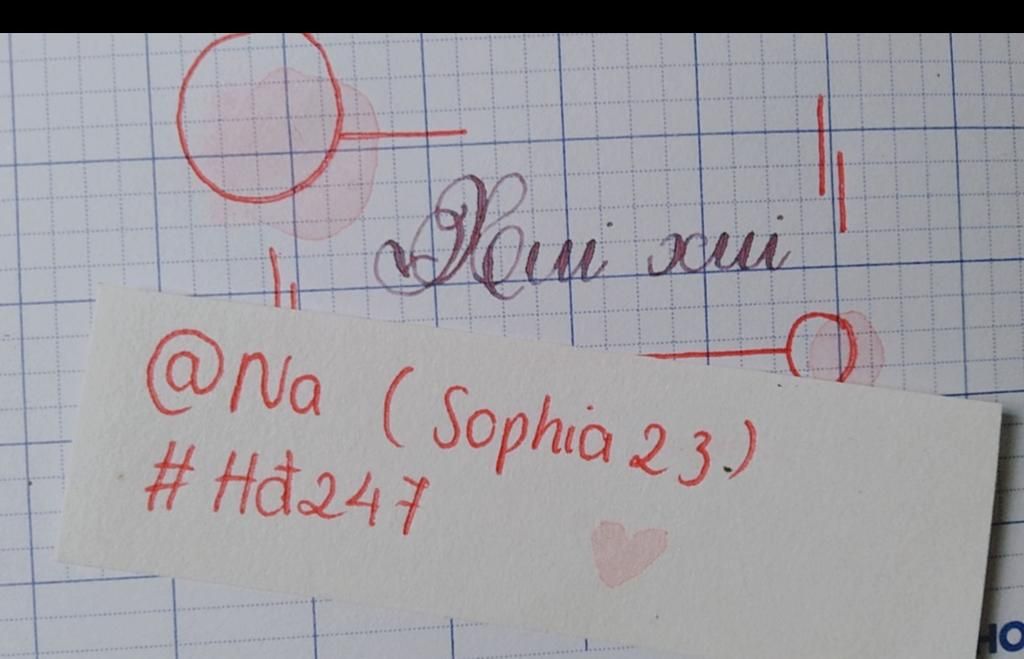 Xui xui
@Na (Sophia 23.)
#Hđ247
HO